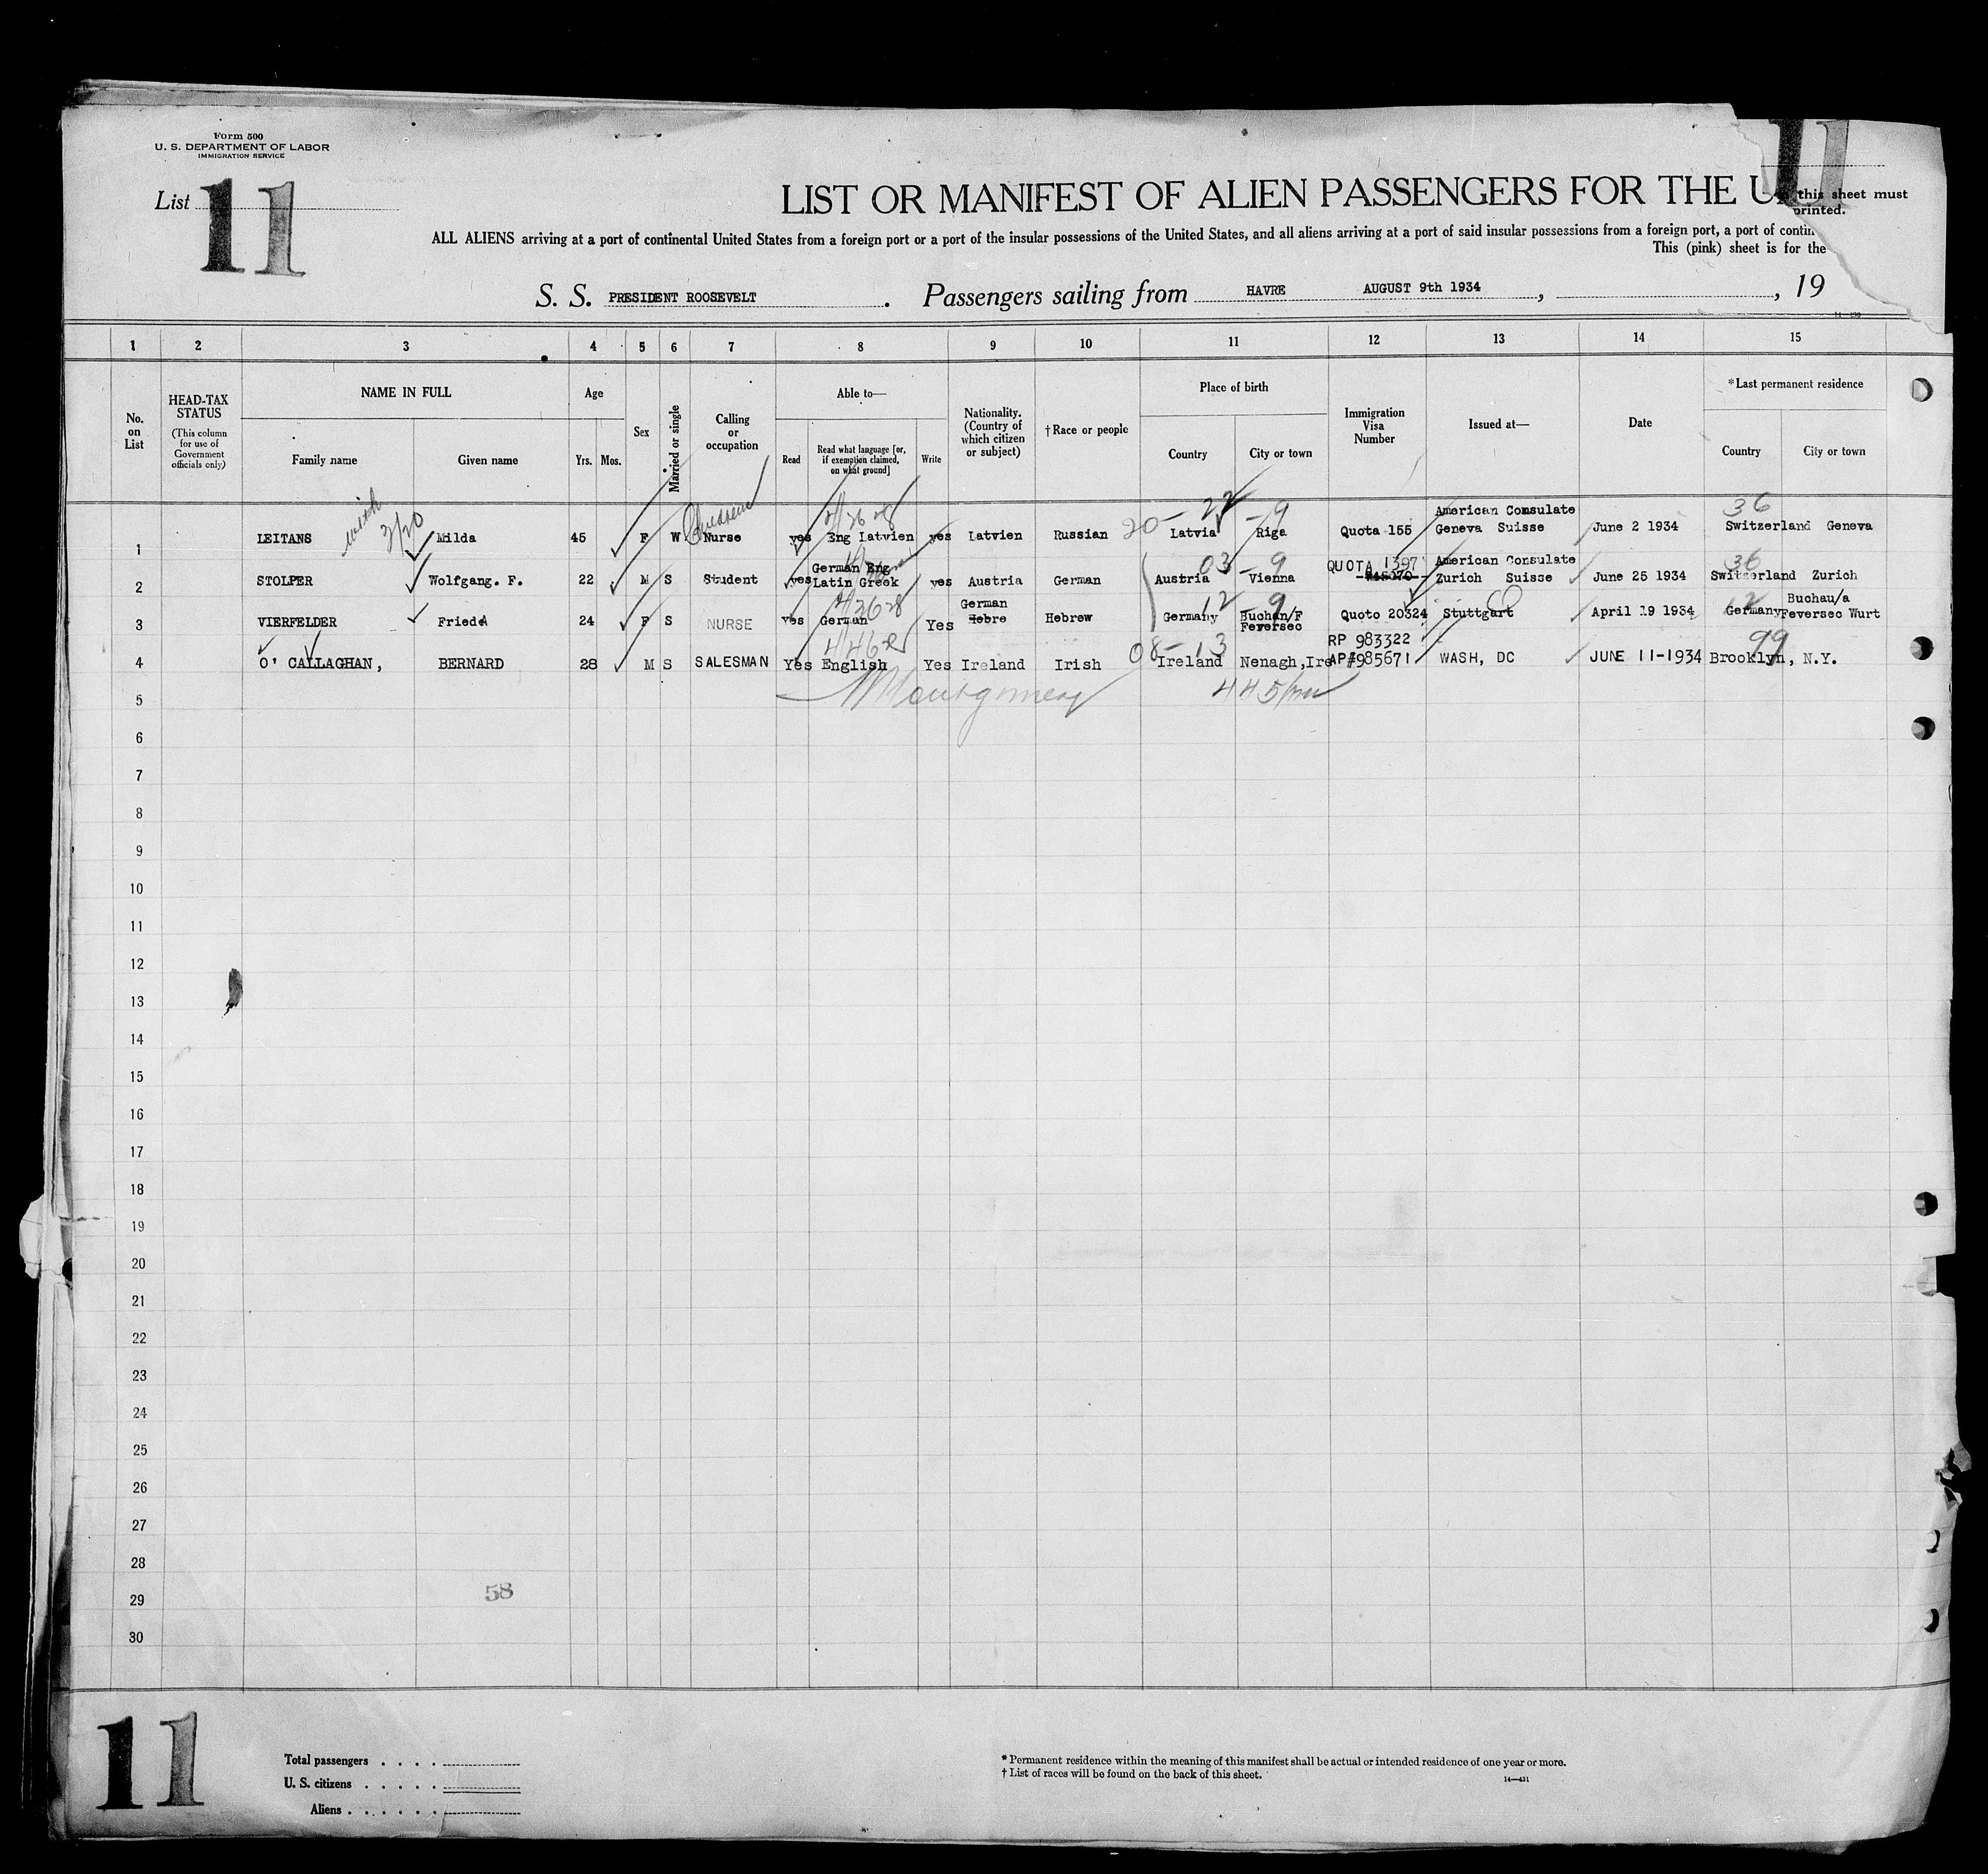 Form 500
U. S. DEPARTMENT OF LABOR
IMMIGRATION SERVICE
List 11
11
LIST OR MANIFEST OF ALIEN PASSENGERS FOR THE U
this sheet must
printed.
ALL ALIENS arriving at a port of continental United States from a foreign port or a port of the insular possessions of the United States, and all aliens arriving at a port of said insular possessions from a foreign port, a port of contin
This (pink) sheet is for the
S. S. PRESIDENT ROOSEVELT . Passengers sailing from HAVRE AUGUST 9th 1934 , , 19
1 2 3 4 5 6 7 8 9 10 11 12 13 14 15
No. on List
HEAD-TAX STATUS
(This column for use of Government officials only)
NAME IN FULL
Family name
Given name
Age
Yrs. Mos.
Sex
Married or single
Calling or occupation
Able to—
Read
Read what language [or, if exemption claimed, on what ground]
Write
Nationality. (Country of which citizen or subject)
†Race or people
Place of birth
Country
City or town
Immigration Visa Number
Issued at—
Date
*Last permanent residence
Country
City or town
with 3/20
20 - 22 - 9
36
1 LEITANS Milda 45 F W Nurse yes Eng Latvien yes Latvien Russian Latvia Riga Quota 155 American Consulate Geneva Suisse June 2 1934 Switzerland Geneva
03 - 9
36
2 STOLPER Wolfgang. F. 22 M S Student yes German Eng Latin Greek yes Austria German Austria Vienna QUOTA 1397 American Consulate Zurich Suisse June 25 1934 Switzerland Zurich
12 - 9
12
3 VIERFELDER Frieda 24 F S NURSE yes German Yes German Hebre Hebrew Germany Buchan/F Feversec Quoto 20324 Stuttgart April 19 1934 Germany Buchau/a Feversec Wurt
08 - 13
99
4 O' CALLAGHAN, BERNARD 28 M S SALESMAN Yes English Yes Ireland Irish Ireland Nenagh,Ire RP 983322 AP#985671 WASH, DC JUNE 11-1934 Brooklyn, N.Y.
5 Montgomery 445/
6
7
8
9
10
11
12
13
14
15
16
17
18
19
20
21
22
23
24
25
26
27
28
29 58
30
11
Total passengers . . . .
U. S. citizens . . . . .
Aliens . . . . . .
* Permanent residence within the meaning of this manifest shall be actual or intended residence of one year or more.
† List of races will be found on the back of this sheet.
14—431